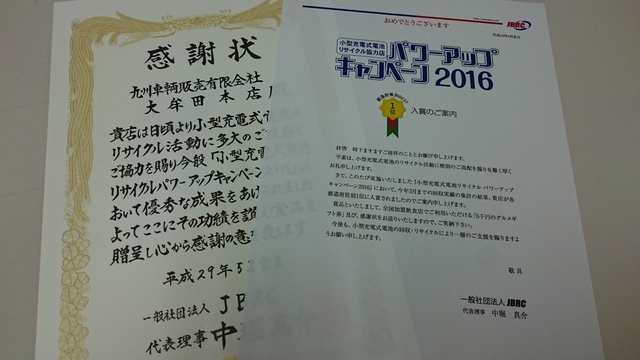 感謝状
九州車輌販売有限会社
大牟田本店
貴店は日頃より小型充電式
リサイクル活動に多大のご
ご協力を賜り今般「小型充
リサイクルパワーアップキャンペーン
おいて優秀な成果をあげ
よってここにその功績を
贈呈し心から感謝の意
平成29年5
一般社団法人 JB
代表理事 中
JBRC
おめでとうございます
小型充電式電池
リサイクル協力店
パワーアップ
キャンペーン2016
1位
入賞のご案内
拝啓 時下ますますご清祥のこととお慶び申し上げます。
平素は、小型充電式電池のリサイクル活動に格別のご高配を賜り有難く厚く
お礼申し上げます。
さて、このたび実施いたしました「小型充電式電池リサイクル パワーアップ
キャンペーン2016」において、今年3月までの回収実績の集計の結果、貴店が各
都道府県別1位に入賞されましたのでご案内申し上げます。
賞品といたしまして、全国加盟飲食店でご利用いただける「5千円のグルメギ
フト券」及び、感謝状をお送りいたしますので、ご笑納下さい。
今後も、小型充電式電池の回収・リサイクルにより一層のご支援を賜りますよ
うお願い申し上げます。
敬具
一般社団法人 JBRC
代表理事 中堀 真介